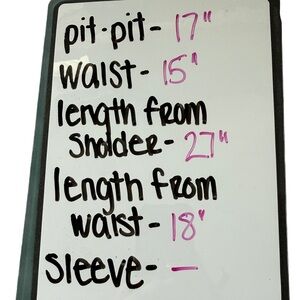 pit-pit- 17"
waist- 15"
length from
sholder- 27"
length from
waist- 18"
sleeve- —